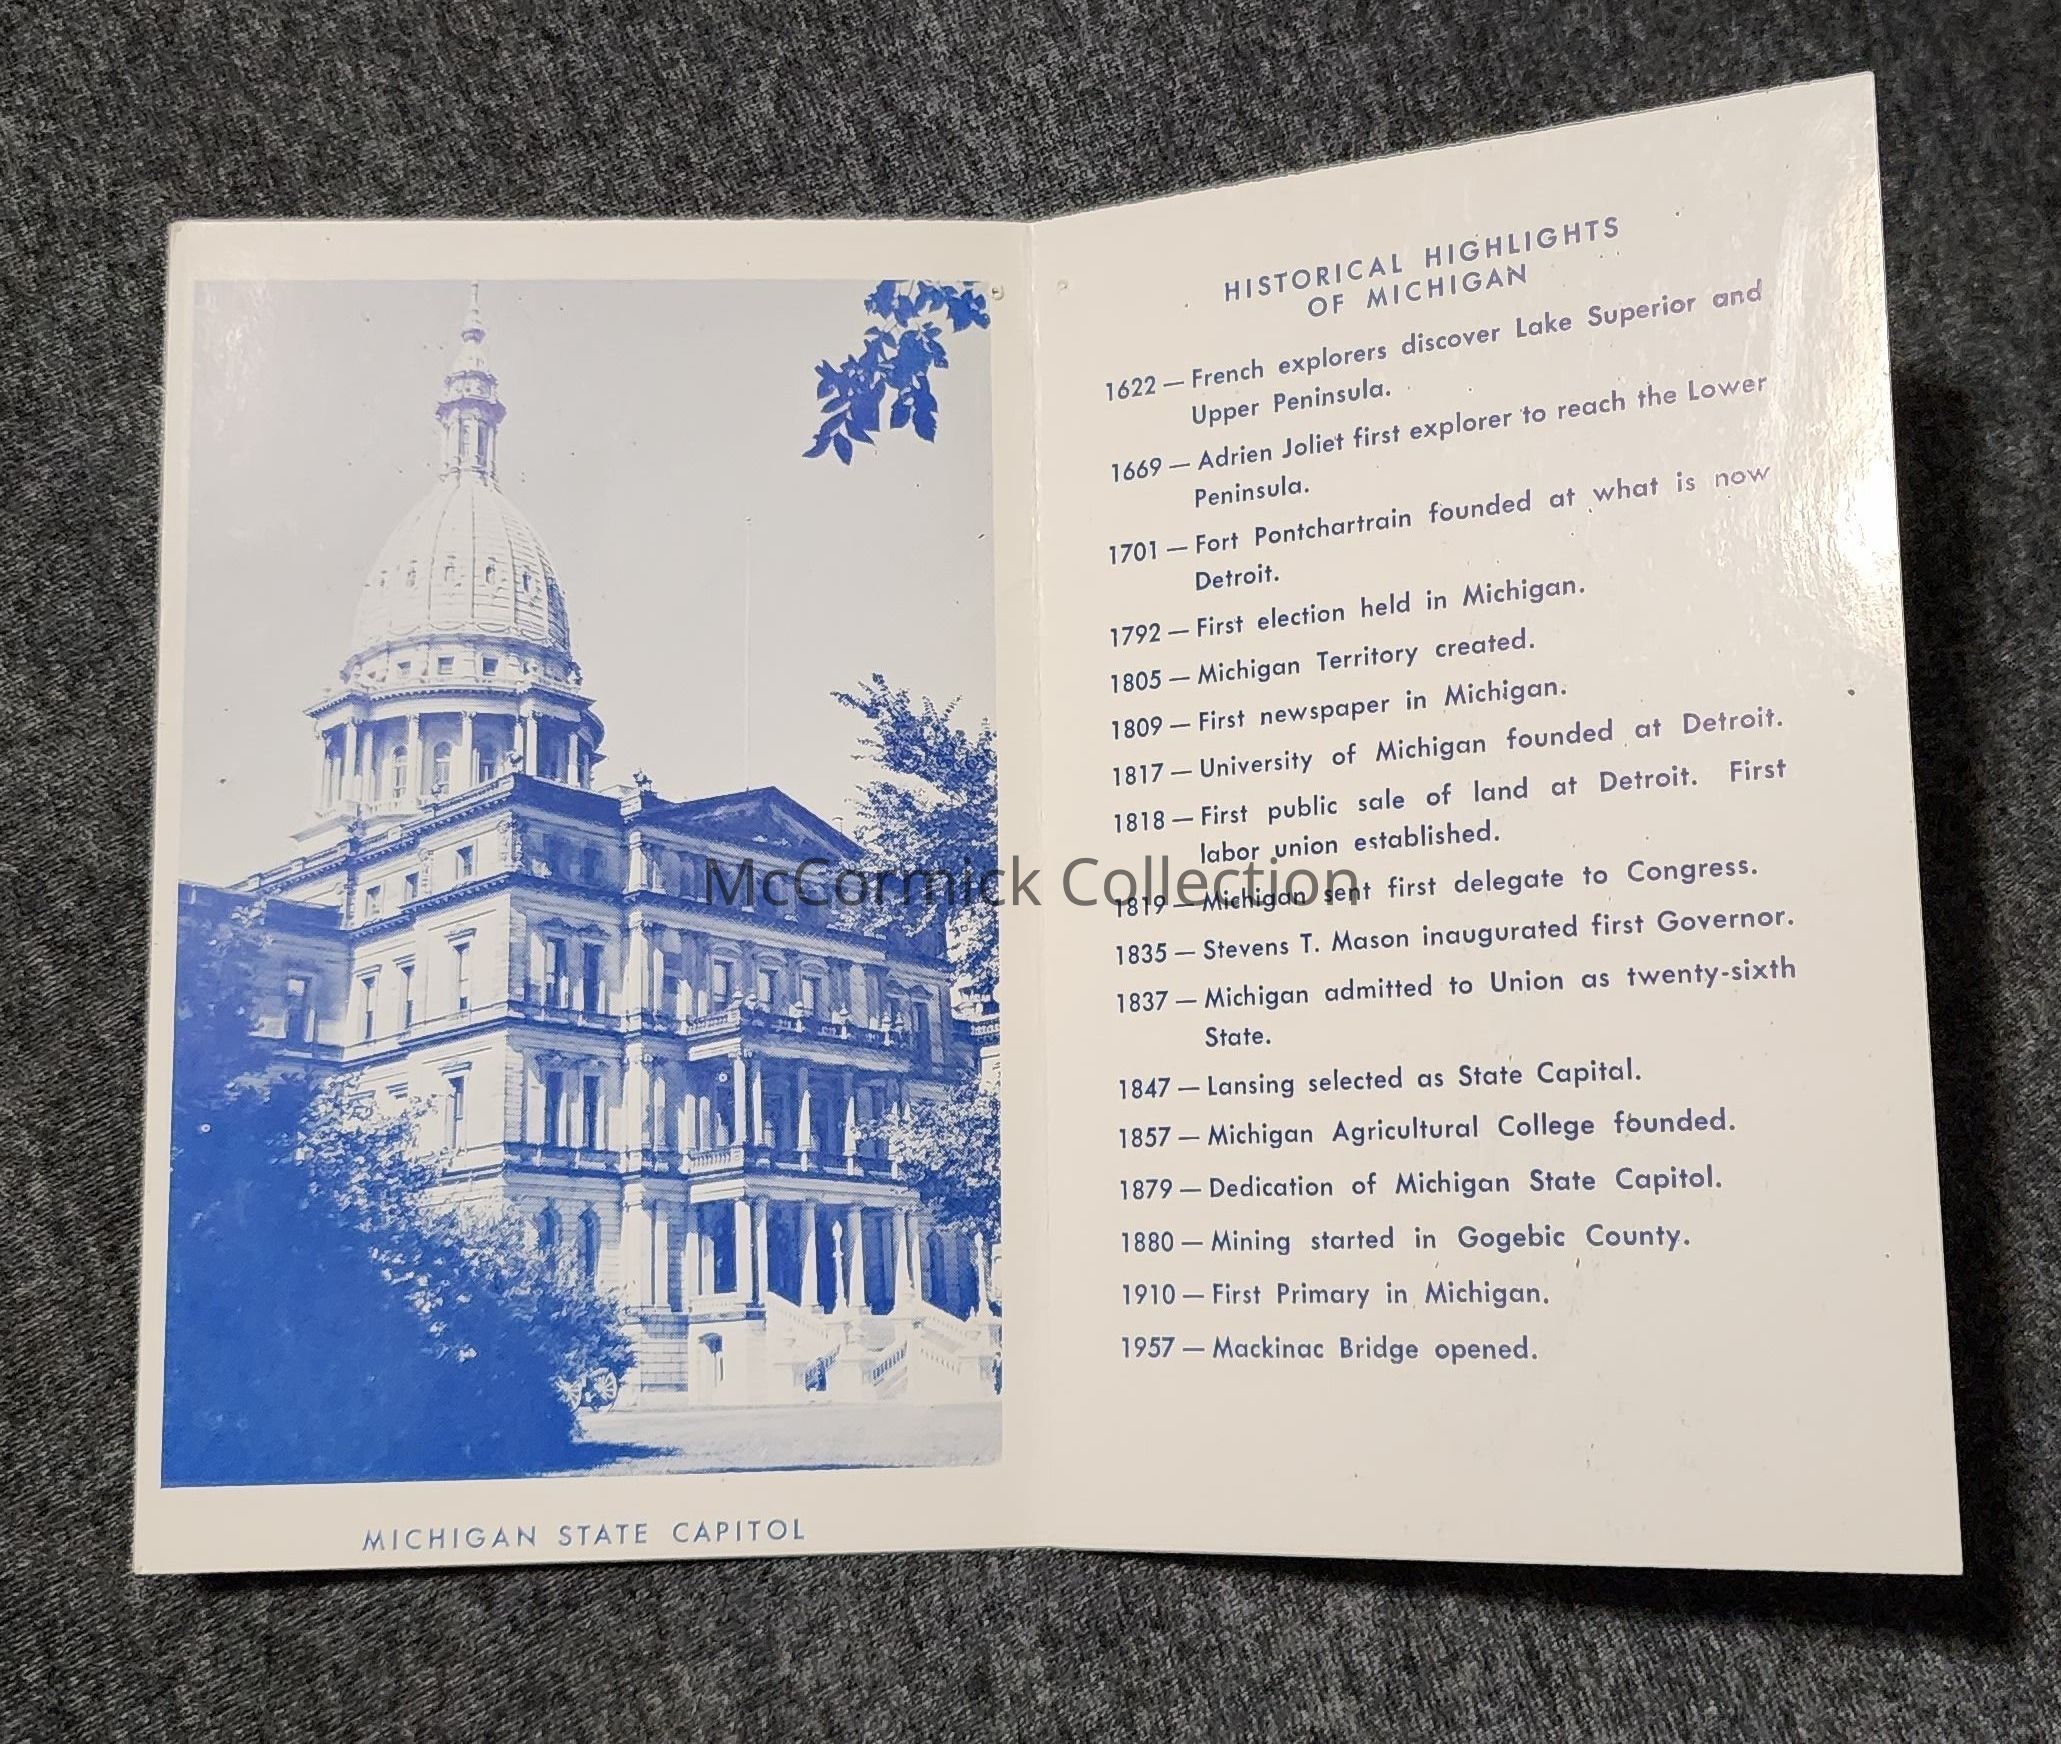 MICHIGAN STATE CAPITOL
HISTORICAL HIGHLIGHTS
OF MICHIGAN
1622 — French explorers discover Lake Superior and
Upper Peninsula.
1669 — Adrien Joliet first explorer to reach the Lower
Peninsula.
1701 — Fort Pontchartrain founded at what is now
Detroit.
1792 — First election held in Michigan.
1805 — Michigan Territory created.
1809 — First newspaper in Michigan.
1817 — University of Michigan founded at Detroit.
1818 — First public sale of land at Detroit. First
labor union established.
McCormick Collection
1819 — Michigan sent first delegate to Congress.
1835 — Stevens T. Mason inaugurated first Governor.
1837 — Michigan admitted to Union as twenty-sixth
State.
1847 — Lansing selected as State Capital.
1857 — Michigan Agricultural College founded.
1879 — Dedication of Michigan State Capitol.
1880 — Mining started in Gogebic County.
1910 — First Primary in Michigan.
1957 — Mackinac Bridge opened.